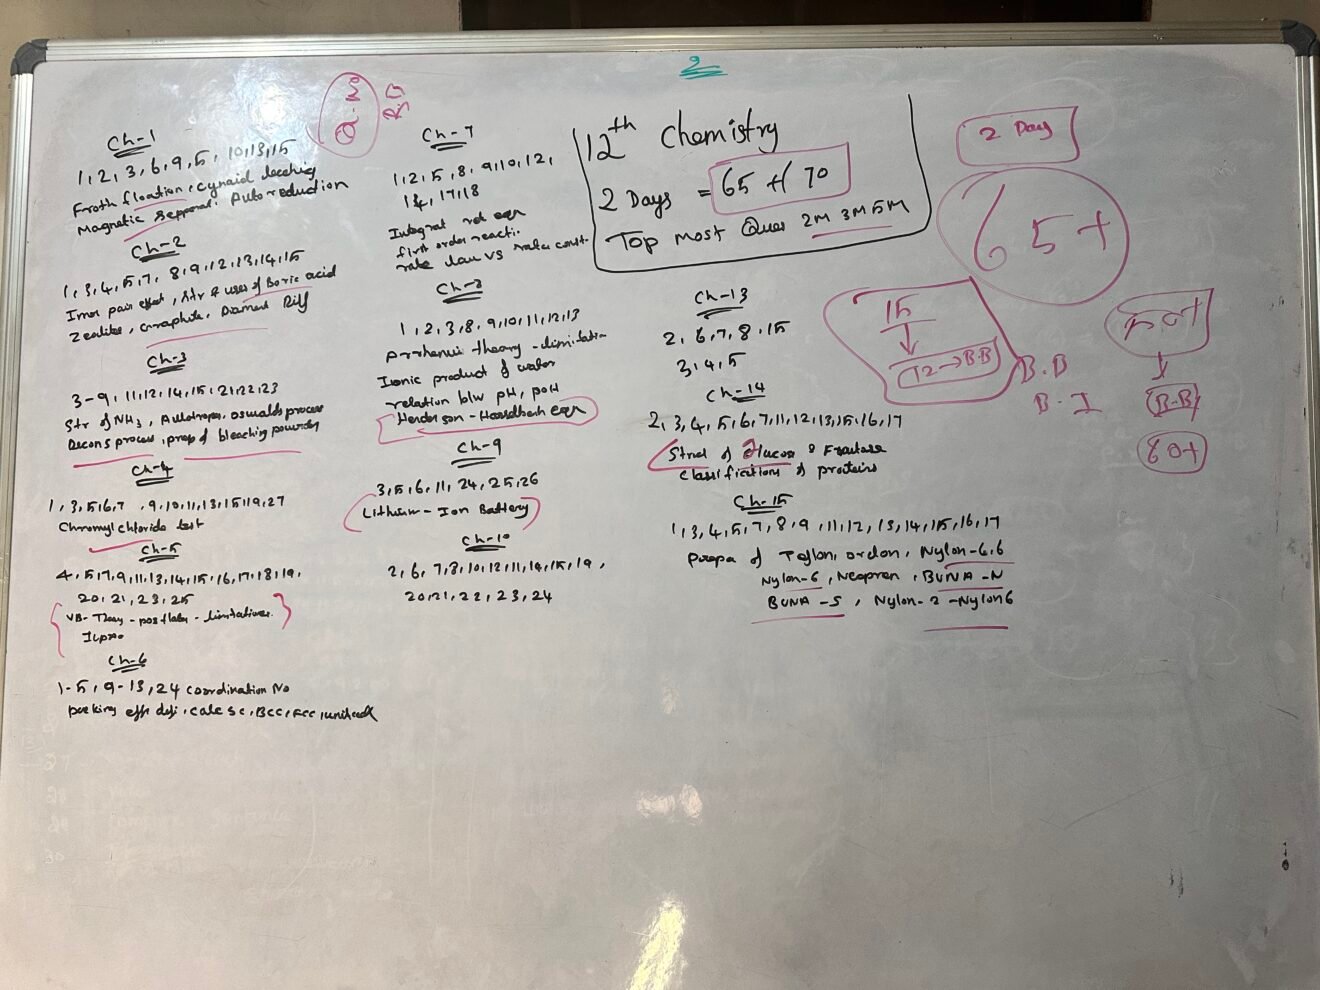 2
Ch-1
1, 2, 3, 6, 9, 5, 10, 13, 15
Froth floation, cynaid leaching
Magnetic Auto reduction
Ch-2
1, 3, 4, 5, 7, 8, 9, 12, 13, 14, 15
Iner pair effect, Str & uses of Boric acid
Zeolite, Graphite, Diamond Diff
Ch-3
3-9, 11, 12, 14, 15, 21, 22, 23
Str of NH3, Allotropes, oswalds process
Decons process, prep of bleaching powder
Ch-4
1, 3, 5, 6, 7, 9, 10, 11, 13, 15, 19, 27
Chromyl chloride test
Ch-5
4, 5, 7, 9, 11, 13, 14, 15, 16, 17, 18, 19,
20, 21, 23, 25
VB-Theory - postlates - limitations
Ch-6
1-5, 9-13, 24 coordination No
packing effi defi, calc SC, BCC, FCC, unitcell
Ch-7
1, 2, 5, 8, 9, 10, 12,
14, 17, 18
Integrat rat eqn
first order reacti.
rate law vs rate const.
Ch-8
1, 2, 3, 8, 9, 10, 11, 12, 13
Arrhenius theory - limitation
Ionic product of water
relation b/w pH, pOH
Henderson - Hasselbach eqn
Ch-9
3, 5, 6, 11, 24, 25, 26
Lithium - Ion Battery
Ch-10
2, 6, 7, 8, 10, 12, 11, 14, 15, 19,
20, 21, 22, 23, 24
12th Chemistry
2 Days = 65 + / 70
Top most Ques 2M 3M 5M
Ch-13
2, 6, 7, 8, 15
3, 4, 5
Ch-14
2, 3, 4, 5, 6, 7, 11, 12, 13, 15, 16, 17
Struct of Glucose & Fructose
Classifications of proteins
Ch-15
1, 3, 4, 5, 7, 8, 9, 11, 12, 13, 14, 15, 16, 17
Prepa of Teflon, orlon, Nylon-6,6
Nylon-6, Neopren, BUNA-N
BUNA-S, Nylon-2-Nylon6
2 Days
65+
15
12→B.B
B.B
B.I
50+
B.B
60+